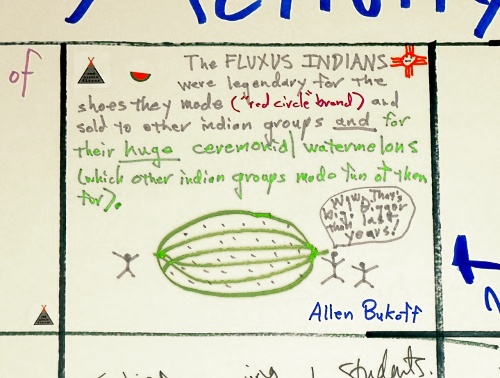 of
The FLUXUS INDIANS
were legendary for the
shoes they made ("red circle" brand) and
sold to other indian groups and for
their huge ceremonial watermelons
(which other indian groups made fun of them
for).
Wow, That's
bigger
than last
years!
Allen Bukoff
students.